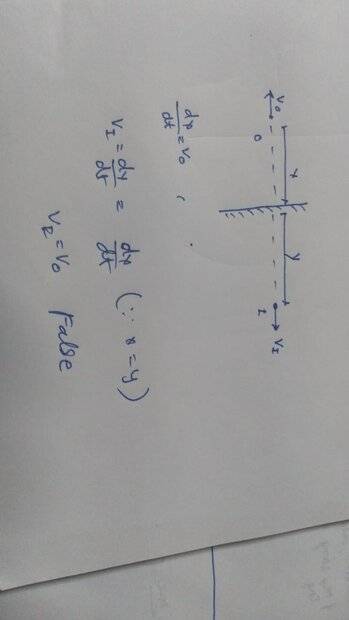 V₀ O x y I V_I
dx/dt = V₀ ,
V_I = dy/dt = dx/dt (∵ x = y)
V_I = V₀ False